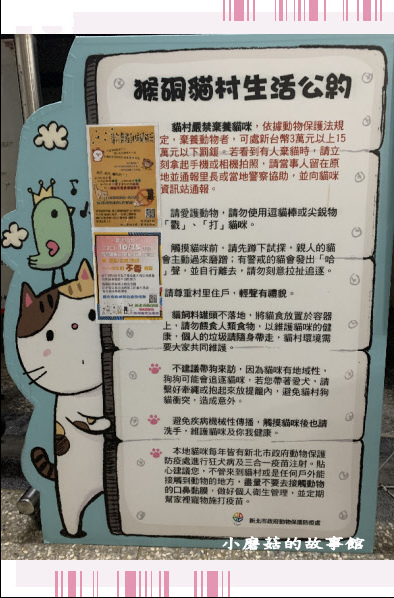 猴硐貓村生活公約
貓村嚴禁棄養貓咪，依據動物保護法規
定，棄養動物者，可處新台幣3萬元以上15
萬元以下罰鍰。若看到有人棄貓時，請立
刻拿起手機或相機拍照，請當事人留在原
地並通報里長或當地警察協助，並向貓咪
資訊站通報。
請愛護動物，請勿使用逗貓棒或尖銳物
「戳」、「打」貓咪。
觸摸貓咪前，請先蹲下試探，親人的貓
會主動過來磨蹭；有警戒的貓會發出「哈
」聲，並自行離去，請勿刻意拉扯追逐。
請尊重村里住戶，輕聲有禮貌。
貓飼料罐頭不落地，將貓食放置於容器
上，請勿餵食人類食物，以維護貓咪的健
康，個人的垃圾請隨身帶走，貓村環境需
要大家共同維護。
不建議帶狗來訪，因為貓咪有地域性，
狗狗可能會追逐貓咪，若您帶著愛犬，請
繫好牽繩或抱起來放提籠內，避免貓狗
貓衝突，造成意外。
避免疾病機械性傳播，觸摸貓咪後也請
洗手，維護貓咪及你我健康。
本地貓咪每年皆有新北市政府動物保護
防疫處進行狂犬病及三合一疫苗注射。貼
心建議您，不管來到貓村或是任何戶外能
接觸到動物的地方，盡量不要去接觸動物
的口鼻黏膜，做好個人衛生管理，並定期
幫家裡寵物施打疫苗。
新北市政府動物保護防疫處
小蘑菇的故事館